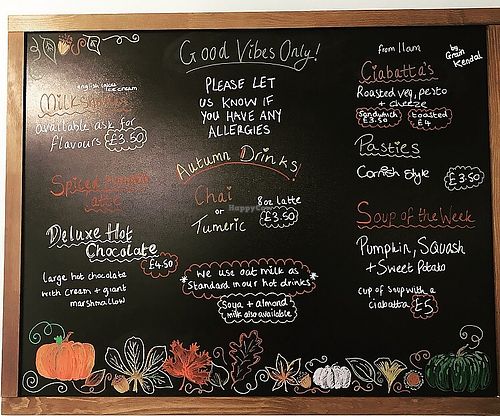 Good Vibes Only!
PLEASE LET
US KNOW IF
YOU HAVE ANY
ALLERGIES
english lakes
ice cream
Milkshakes
available ask for
flavours £3.50
Spiced Pumpkin
Latte
Deluxe Hot
Chocolate
£4.50
large hot chocolate
with cream + giant
marshmallow
Autumn Drinks!
Chai
or
Tumeric
8oz latte
£3.50
HappyCow
we use oat milk as
standard in our hot drinks
Soya + almond
milk also available
from 11am
by Grain
Kendal
Ciabatta's
Roasted veg, pesto
+ cheeze
sandwich
£3.50
toasted
£4
Pasties
Cornish Style
£3.50
Soup of the Week
Pumpkin, Squash
+ Sweet Potato
cup of soup with a
ciabatta £5